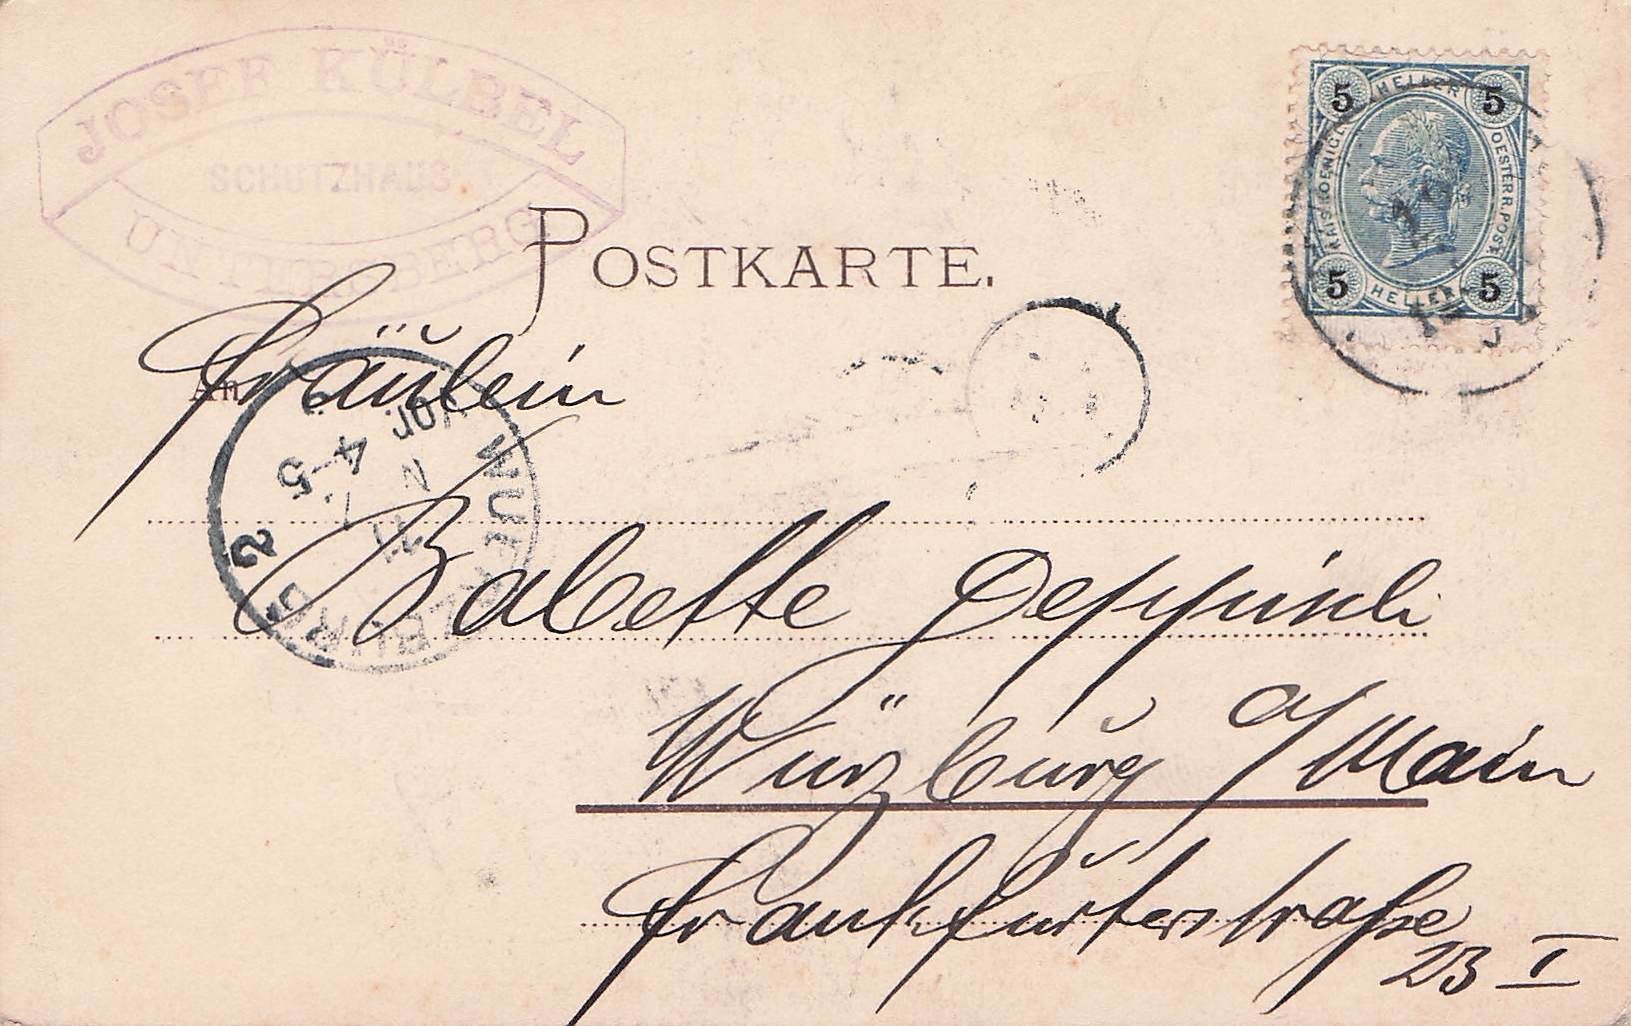 JOSEF KÜLBEL
SCHUTZHAUS
UNTERSBERG
POSTKARTE.
HELLER
5 5
KAIS. KOENIGL. OESTERR. POST
5 5
HELLER
An
Fräulein
WUERZBURG 2
Vor.
4-5
Babette
Würzburg a/Main
Frankfurterstraße
23 I